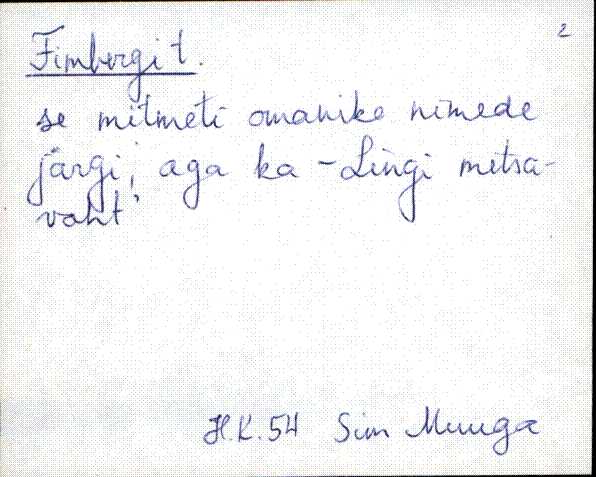 2
Fimbergi t.
se mitmeti omanike nimede
järgi; aga ka - Lingi metsa-
vaht'
H.K.54 Sim Muuga